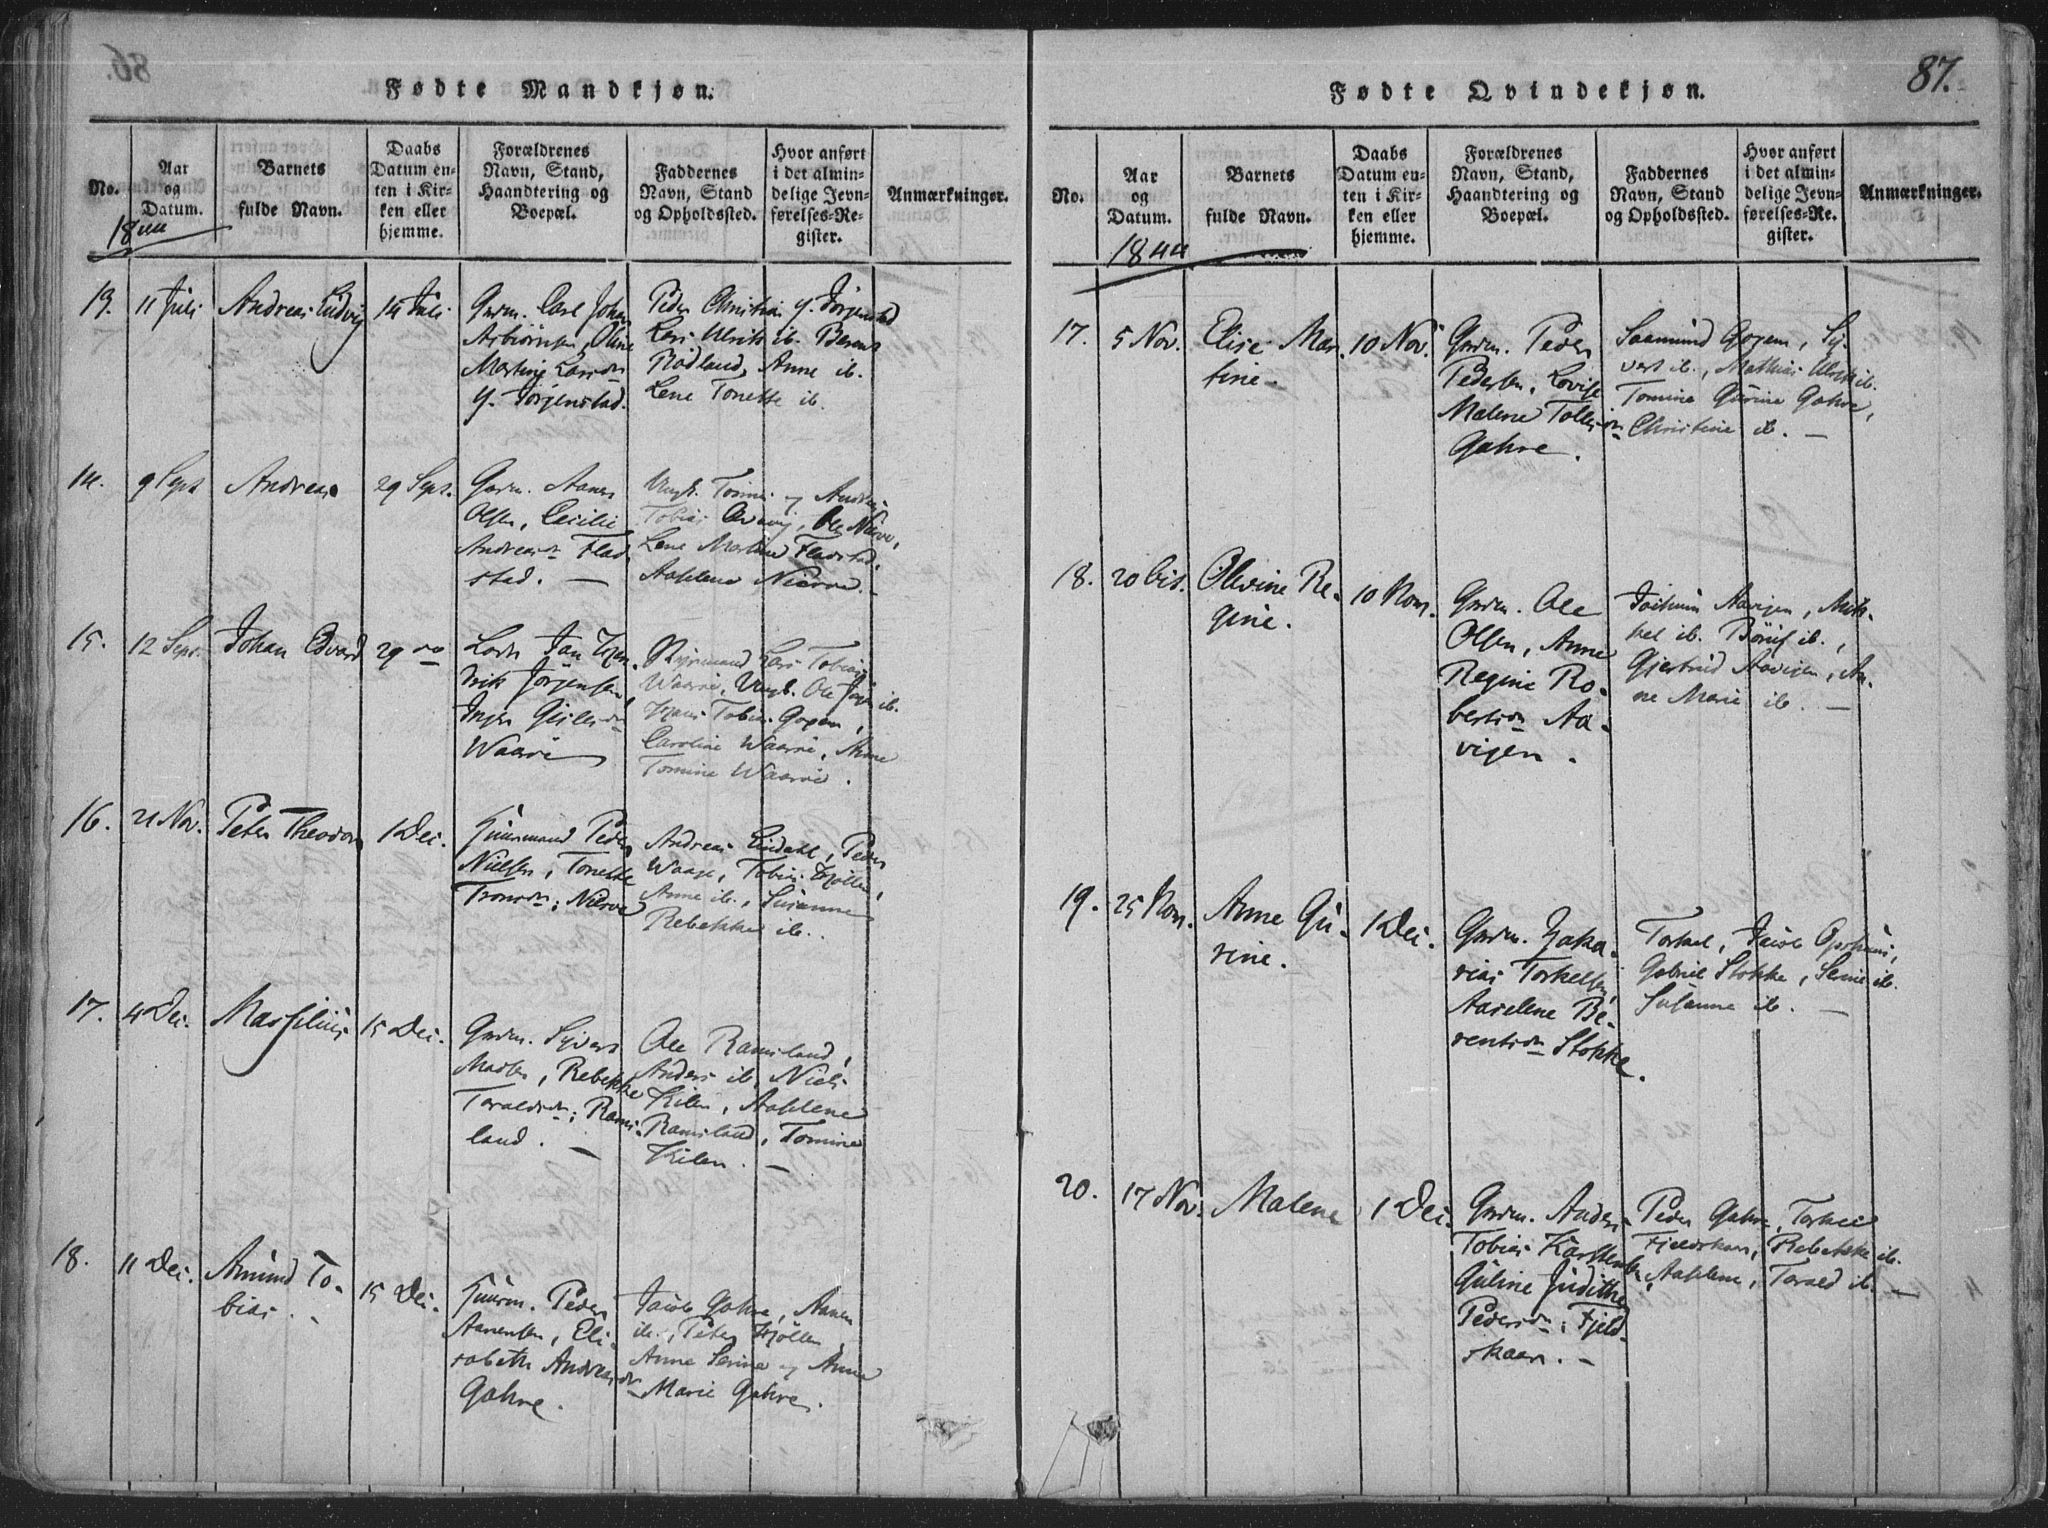 Fødte Mandkjøn.
No.
Aar
og
Datum.
Barnets
fulde Navn.
Daabs
Datum en-
ten i Kir-
ken eller
hjemme.
Forældrenes
Navn, Stand,
Haandtering og
Boepæl.
Faddernes
Navn, Stand
og Opholdssted.
Hvor anført
i det almin-
delige Jevn-
førelses-Re-
gister.
Anmærkninger.
1844
13.
11 Juli
Andreas Ludvig
14 Juli
Gm. Carl Johan
Asbiörnsen, Oline
Martine Larsdr
y. Jörgenstad.
Peder Christian y. Jörgenstad
Lars Ulrik ib. Berent
Rödland, Anne ib.
Lene Tonette ib.
14.
9 Sept
Andreas
29 Sept.
Gm. Aanen
Olsen, Cecilie
Andreasdr Flad-
stad. —
Ungk. Tönnes og Andreas
Tobias, Ole Nærve,
Lene Martine Fladstad.
Aaslene Nierve. –
15.
12 Sept.
Johan Edvard
29 do
Lods Jan Hen-
drik Jörgensen
Inger Gislesdr
Waarøe
Styrmand Lars Tobias
Waarøe, Ungk. Ole Jörgen ib.
Hans Tobias Gogem,
Caroline Waarøe, Anne
Tomine Waarøe.
16.
21 Nov.
Peter Theodor
1 Dec.
Huusmand Peder
Nielsen, Tonette
Tronsdr; Nierve
Andreas Eindahl, Peder
Waage, Tobias Hjöllen,
Anne ib., Susanne
Rebekke ib..
17.
4 Dec.
Massilius
15 Dec.
Gm. Syvert
Madsen, Rebekke
Taraldsdr; Rams-
land. —
Ole Ramsland,
Anders ib, Niels
Kilen, Aaslene
Ramsland, Tomine
Kilen. —
18.
11 Dec.
Amund To-
bias. –
15 Dec.
Huusm. Peder
Aanensen, Eli-
sabeth Andreasdr
Gahre.
Jacob Gahre, Aanen
ib., Peter Hjöllen
Anne Serine og Anne
Marie Gahre.
87.
Fødte Qvindekjøn.
No.
Aar
og
Datum.
Barnets
fulde Navn.
Daabs
Datum en-
ten i Kir-
ken eller
hjemme.
Forældrenes
Navn, Stand,
Haandtering og
Boepæl.
Faddernes
Navn, Stand
og Opholdssted.
Hvor anført
i det almin-
delige Jevn-
førelses-Re-
gister.
Anmærkninger.
1844
17.
5 Nov.
Elise Mar-
tine –
10 Nov.
Gm. Peder
Pedersen, Lovise
Malene Tollisdr
Gahre.
Saamund Gogem, Sy-
vert ib., Mathias Ulrik ib.
Tomine Gurine Gahre,
Christine ib. —
18.
20 Oct.
Olevine Re-
gine.
10 Nov.
Gm. Ole
Olsen, Anne
Regine Ro-
bertsdr Aa-
vigen.
Jochum Aavigen, Mik-
kel ib. ib.,
Gjertrud Aavigen, An-
ne Marie ib. —
19.
25 Nov.
Anne Gu-
rine.
1 Dec.
Gm. Zaka-
rias Torkelsen
Aaselene Be-
rentsdr Stokke.
Torkel, Jacob Opshuus,
Gabriel Stokke, Serine ib.
Susanne ib. —
20.
17 Nov.
Malene
1 Dec.
Gm. Anders
Tobias Karstensen
Guline Judithe
Pedersdr; Fjeld-
skaar. –
Peder Gahre, Torkel
Fjeldskaar, Rebekke ib.
Aaslene, Tarald ib. —